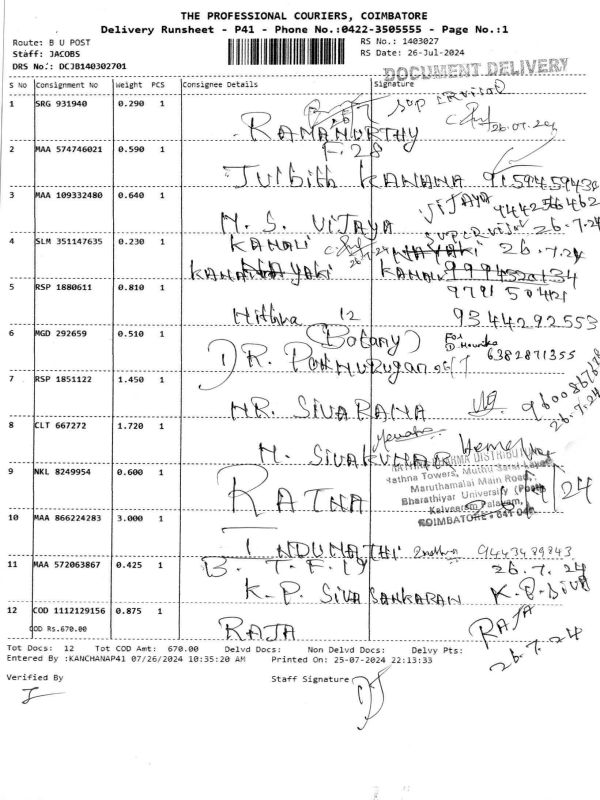 THE PROFESSIONAL COURIERS, COIMBATORE
Delivery Runsheet - P41 - Phone No.:0422-3505555 - Page No.:1
Route: B U POST RS No.: 1403027
Staff: JACOBS RS Date: 26-Jul-2024
DRS No.: DCJB140302701
DOCUMENT DELIVERY
S No Consignment No Weight PCS Consignee Details Signature
1 SRG 931940 0.290 1
SUPERVISOR
RAMAMURTHY 26.07.24
F.28
2 MAA 574746021 0.590 1
KANANA 9159459430
3 MAA 109332480 0.640 1
VIJAYA 944256462
M. S. VIJAYA SUPERVISOR 26.7.24
4 SLM 351147635 0.230 1
KANALI 26.7.24 NAYAKI 26.7.24
NAYAKI
5 RSP 1880611 0.810 1
9791504421
12 9344292553
6 MGD 292659 0.510 1
(Botany) For
6382871355
DR.
7 RSP 1851122 1.450 1
MR. SIVARAMA
26.7.24
8 CLT 667272 1.720 1
M. SIVAKUMAR
Rathna Towers,
Maruthamalai Main Road,
Bharathiyar University (Post)
Kalveeram Palayam,
COIMBATORE - 641 046.
9 NKL 8249954 0.600 1
RATNA
10 MAA 866224283 3.000 1
INDUMATHI 9443489843
B. T. F. 19 26.7.24
11 MAA 572063867 0.425 1
K. P. SIVA SANKARAN K.P.Siva
12 COD 1112129156 0.875 1
COD Rs.670.00
RAJA RAJA
26.7.24
Tot Docs: 12 Tot COD Amt: 670.00 Delvd Docs: Non Delvd Docs: Delvy Pts:
Entered By :KANCHANAP41 07/26/2024 10:35:20 AM Printed On: 25-07-2024 22:13:33
Verified By Staff Signature